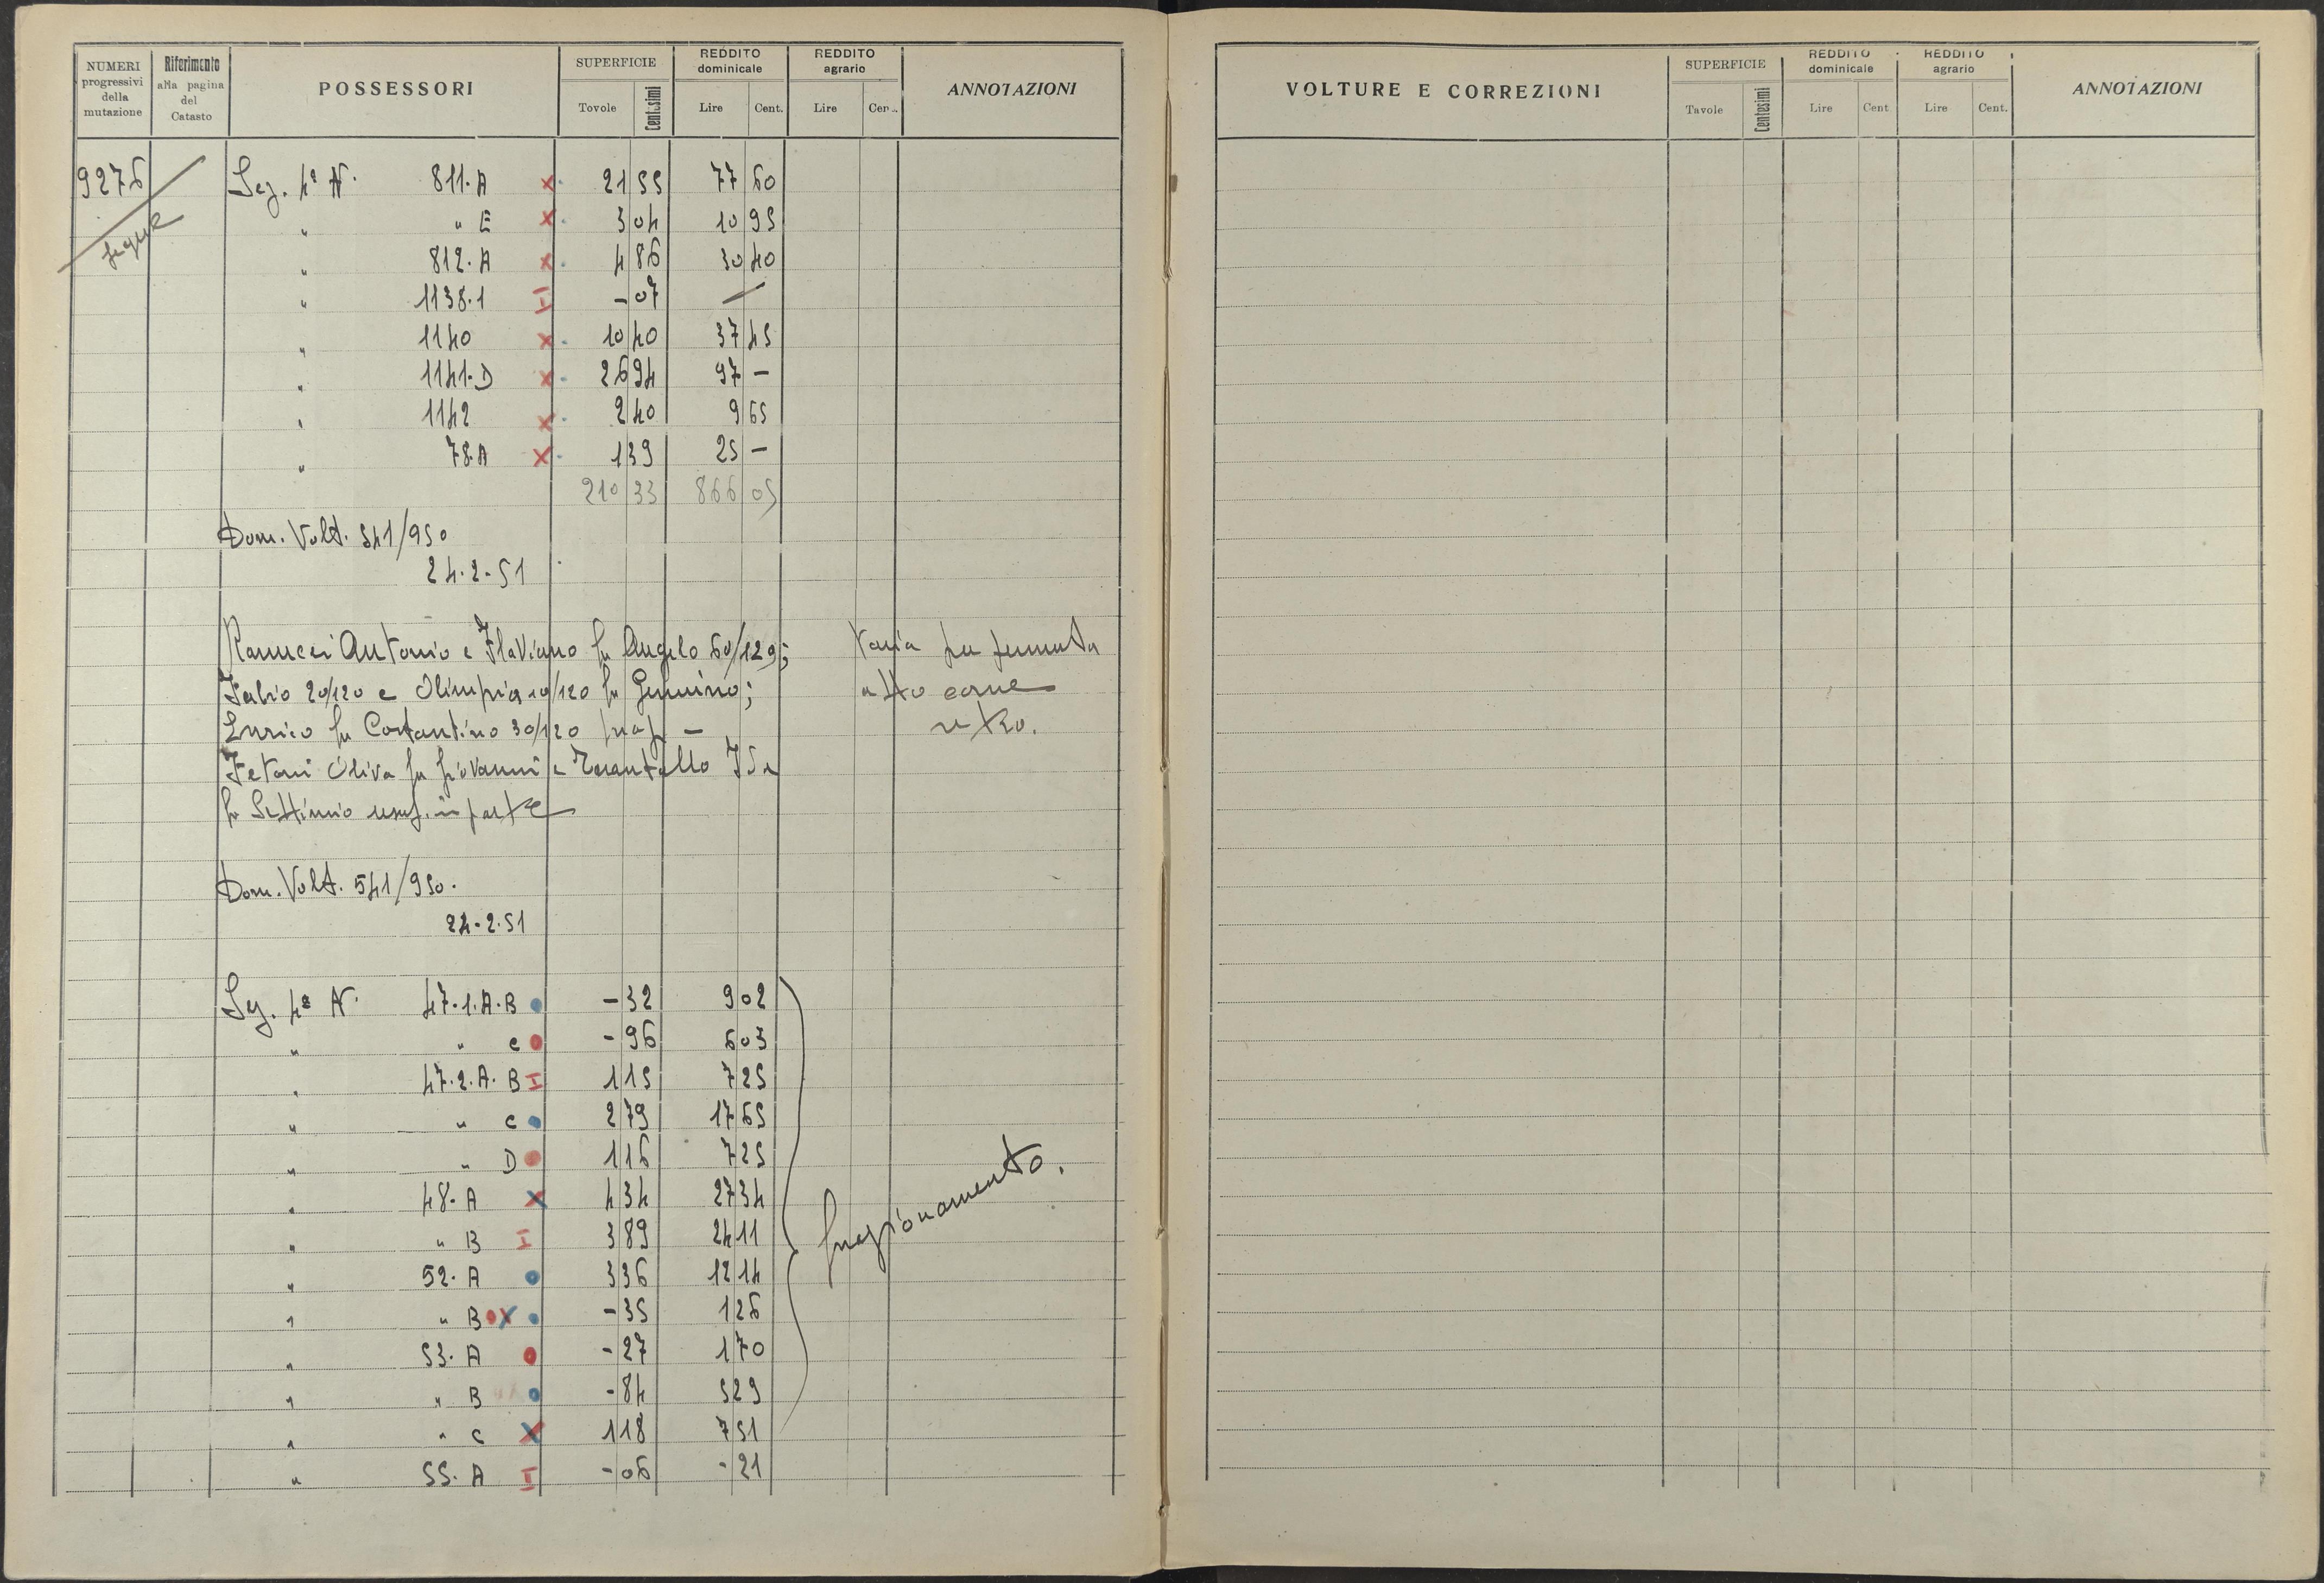 NUMERI progressivi della mutazione | Riferimento alla pagina del Catasto | POSSESSORI | SUPERFICIE Tovole Centesimi | REDDITO dominicale Lire Cent. | REDDITO agrario Lire Cen.. | ANNOTAZIONI
9276 Sez. 4ª N. 811. A x. 21 55 77 60
segue
" " E x. 3 04 10 95
" 812. A x. 4 86 30 40
" 1138.1 I - 07 —
" 1140 x. 10 40 37 45
" 1141. D x. 26 94 97 -
" 1142 x. 2 40 9 65
" 78. A x. 1 39 25 -
210 33 866 05
Dom. Volt. 541/950
24.2.51
Rannucci Antonio e Flaviano fu Angelo 60/120; Varia per permuta
Fabio 20/120 e Olimpia 10/120 fu Gemino; atto come
Enrico fu Costantino 30/120 prop - retro.
Fetoni Oliva fu Giovanni e Tarantello Isa
fu Settimio usuf. in parte
Dom. Volt. 541/950.
24.2.51
Sez. 4ª N. 47.1. A. B - 32 9 02
" " C - 96 6 03
" 47.2. A. B I 1 15 7 25
" " C 2 79 17 65
" " D 1 16 7 25
" 48. A x 4 34 27 34
" " B I 3 89 24 11
frazionamento.
" 52. A 3 36 12 14
" " B x - 35 1 26
" 53. A - 27 1 70
" " B - 84 5 29
" " C x 1 18 7 51
" 55. A I - 06 - 21
VOLTURE E CORREZIONI | SUPERFICIE Tavole Centesimi | REDDITO dominicale Lire Cent | REDDITO agrario Lire Cent. | ANNOTAZIONI